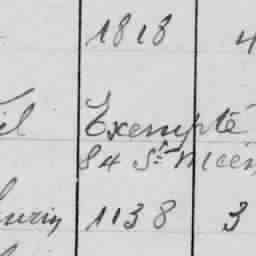 1818 4
il Exempté
84 St Méen
urin 1138 3